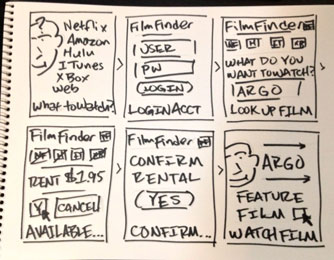 Netflix
Amazon
Hulu
ITunes
XBox
Web
What to Watch?
FilmFinder
USER
PW
LOGIN
LOGIN ACCT
FilmFinder
WHAT DO YOU
WANT TO WATCH?
ARGO
LOOK UP FILM
FilmFinder
RENT $1.95
Y CANCEL
AVAILABLE...
FilmFinder
CONFIRM
RENTAL
YES
CONFIRM...
ARGO
FEATURE
FILM
WATCH FILM